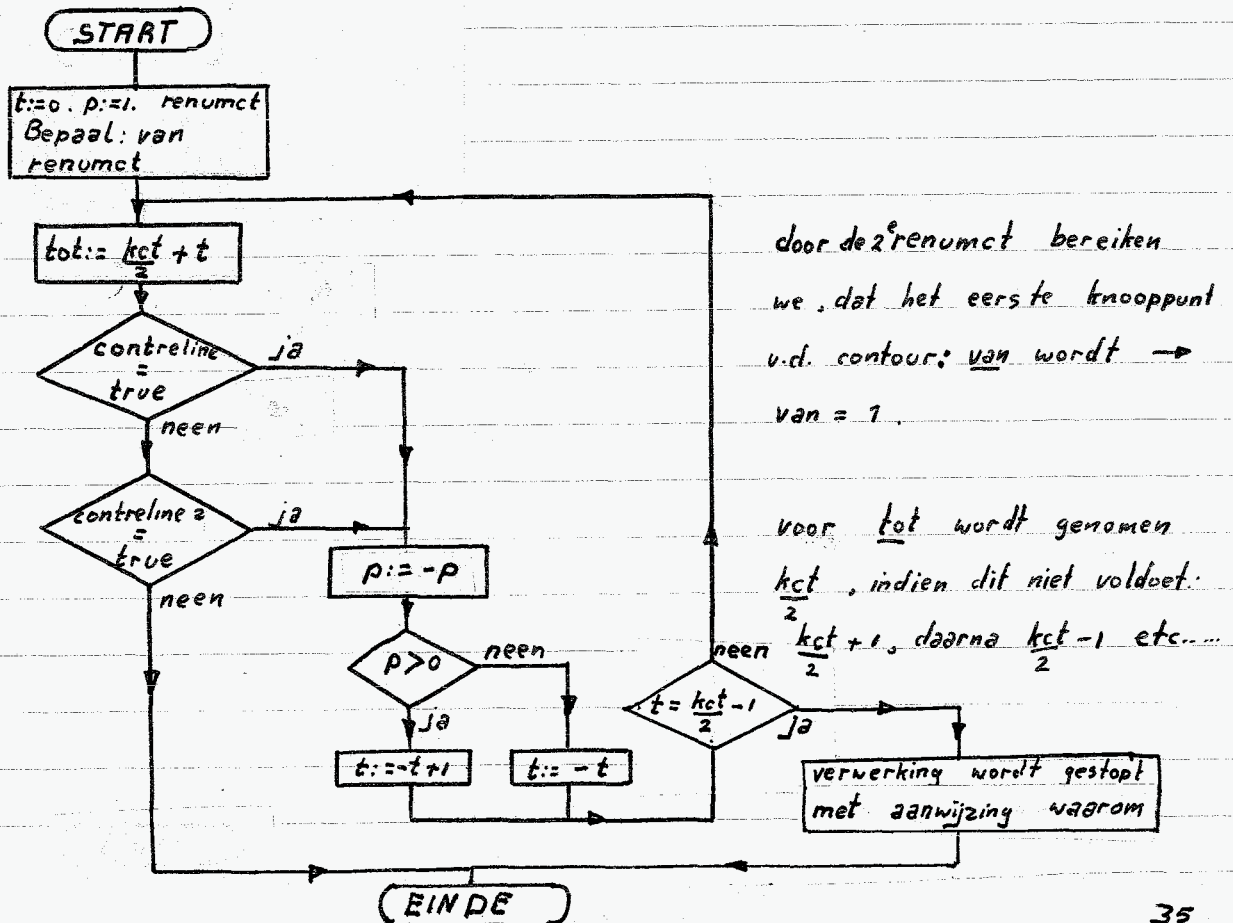 START
t:=0. p:=1. renumct
Bepaal: van
renumct
tot:= kct/2 + t
contreline
=
true
ja
neen
contreline 2
=
true
ja
neen
p:= -p
p>0
neen
ja
t:=-t+1
t:= -t
t= kct/2 -1
neen
ja
verwerking wordt gestopt
met aanwijzing waarom
EINDE
door de 2e renumct bereiken
we, dat het eerste knooppunt
v.d. contour: van wordt →
van = 1.
voor tot wordt genomen
kct/2, indien dit niet voldoet:
kct/2 +1, daarna kct/2 -1 etc.....
35